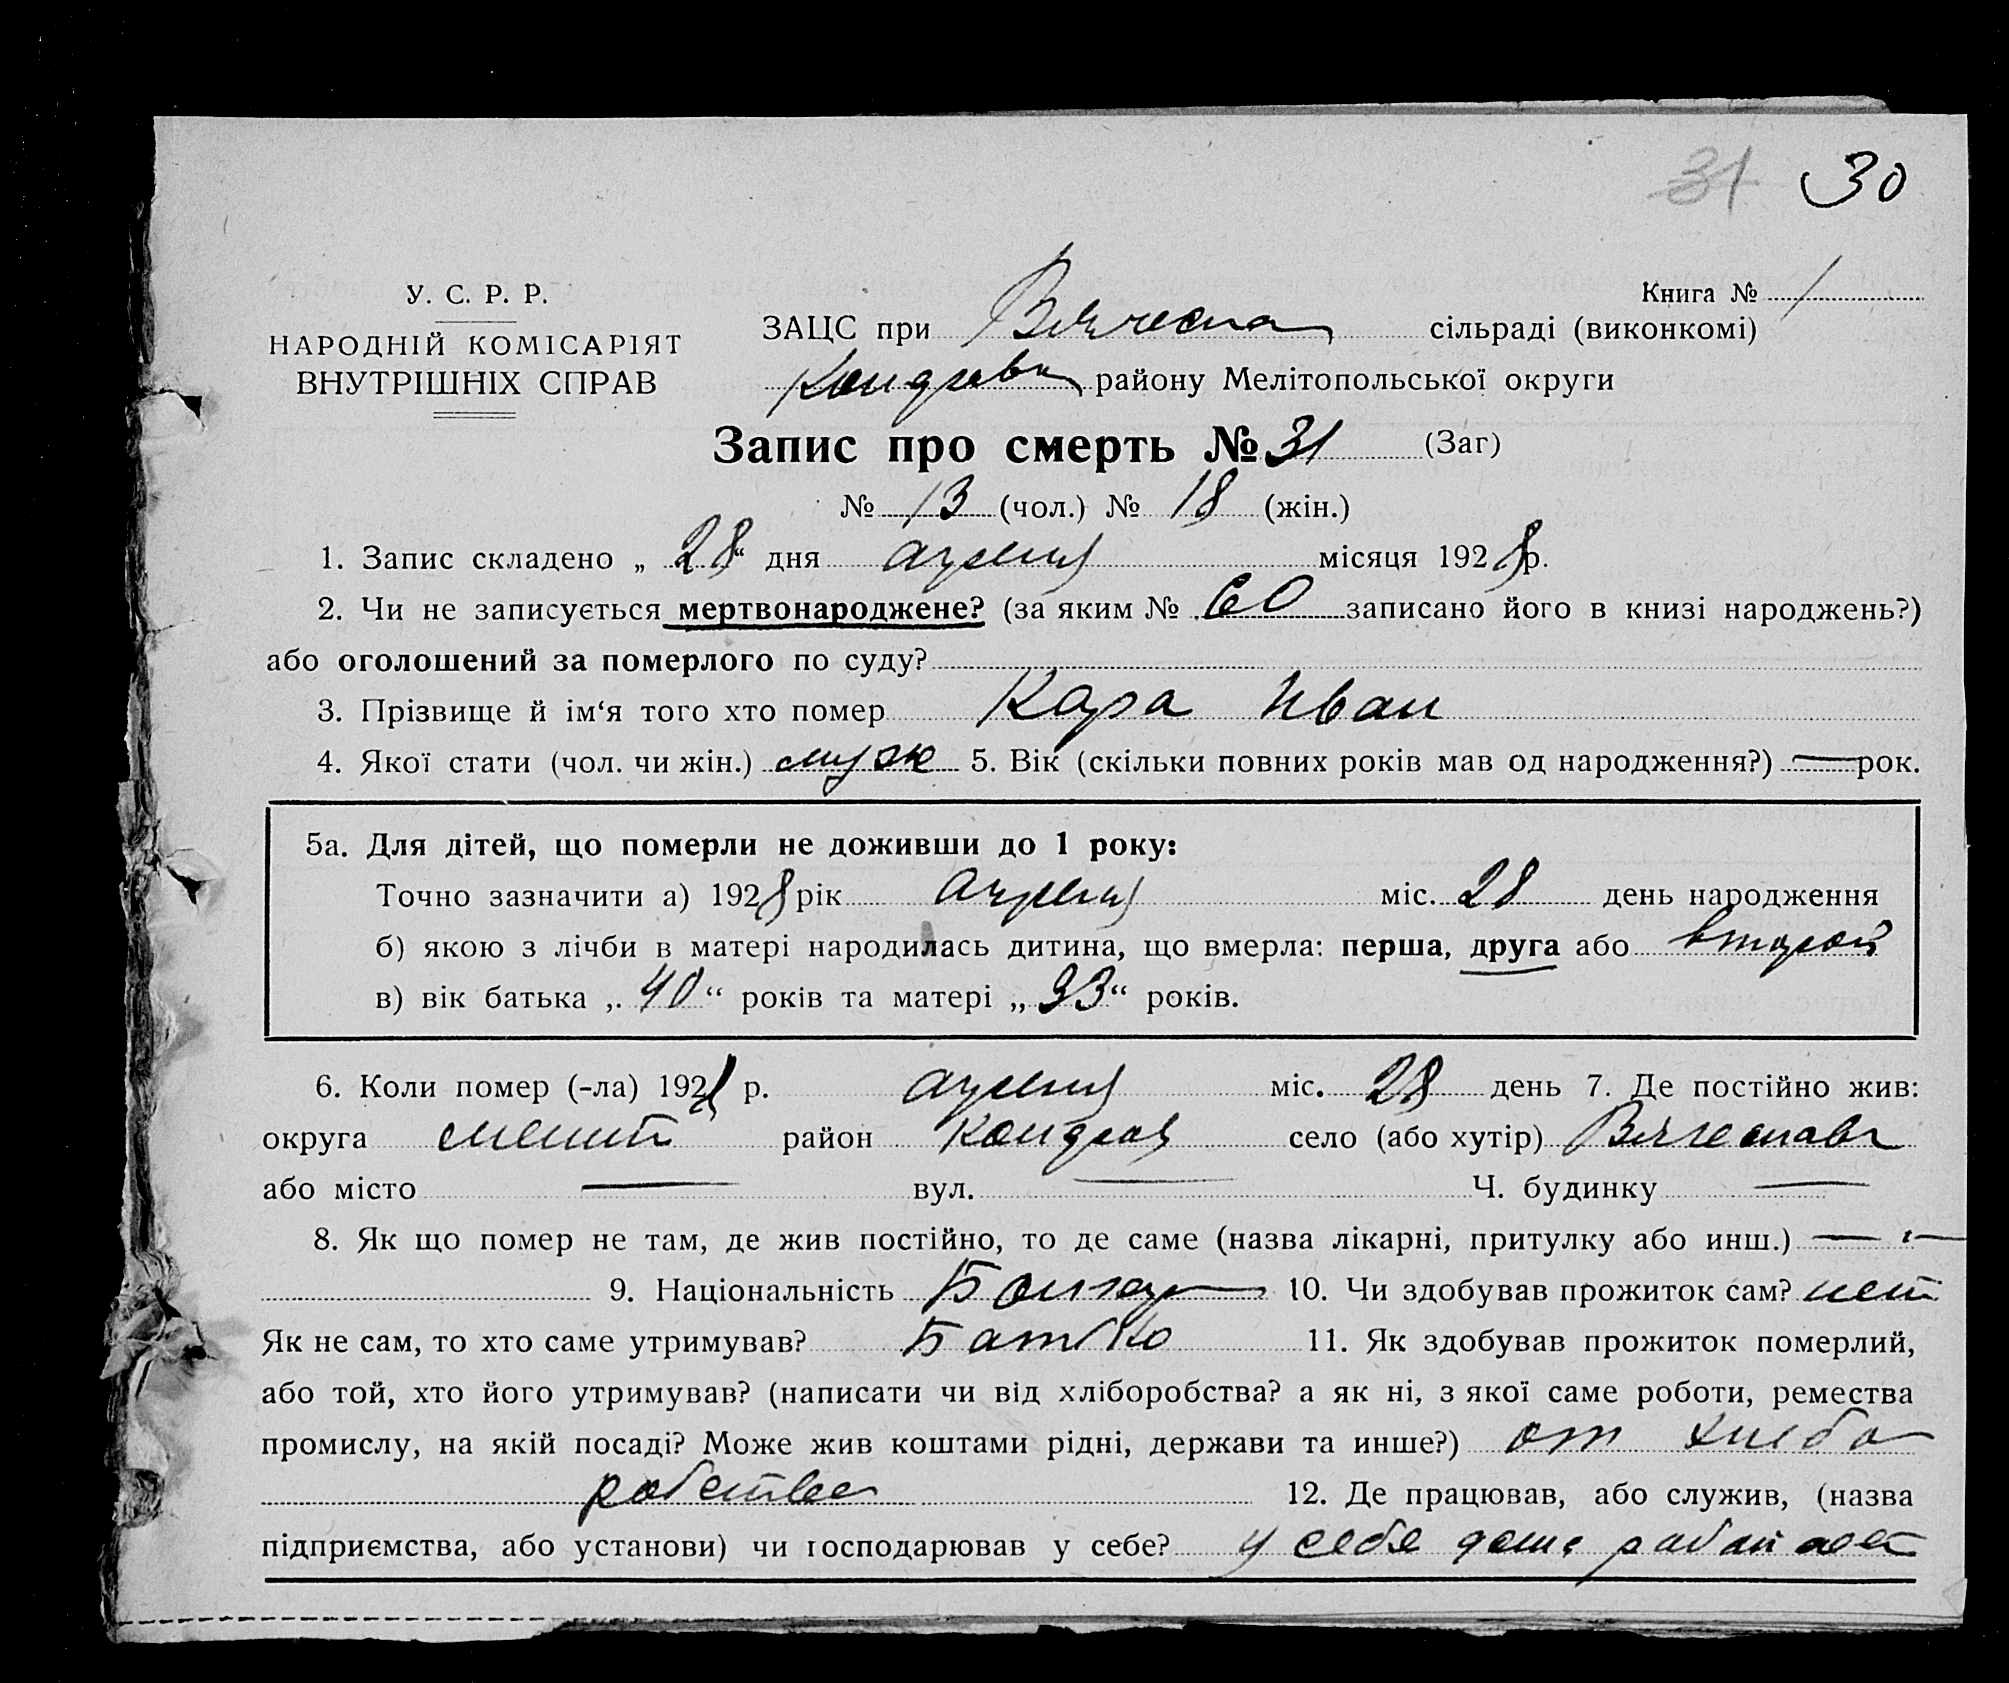 31 30
У. С. Р. Р.
НАРОДНІЙ КОМІСАРІЯТ
ВНУТРІШНІХ СПРАВ
Книга № 1
ЗАЦС при сільраді (виконкомі)
району Мелітопольської округи
Запис про смерть № 31 (Заг)
№ 13 (чол.) № 18 (жін.)
1. Запис складено „ 28 “ дня апреля місяця 1928 р.
2. Чи не записується мертвонароджене? (за яким № 60 записано його в книзі народжень?)
або оголошений за померлого по суду?
3. Прізвище й ім‘я того хто помер Кара Иван
4. Якої стати (чол. чи жін.) муж 5. Вік (скільки повних років мав од народження?) — рок.
5а. Для дітей, що померли не доживши до 1 року:
Точно зазначити а) 1928 рік апреля міс. 28 день народження
б) якою з лічби в матері народилась дитина, що вмерла: перша, друга або второй
в) вік батька „ 40 “ років та матері „ 33 “ років.
6. Коли помер (-ла) 1928 р. апреля міс. 28 день 7. Де постійно жив:
округа мелит район село (або хутір)
або місто — вул. — Ч. будинку —
8. Як що помер не там, де жив постійно, то де саме (назва лікарні, притулку або инш.) — —
9. Національність Болгар 10. Чи здобував прожиток сам? нет
Як не сам, то хто саме утримував? Батько 11. Як здобував прожиток померлий,
або той, хто його утримував? (написати чи від хліборобства? а як ні, з якої саме роботи, ремества
промислу, на якій посаді? Може жив коштами рідні, держави та инше?) от хлебо
робства 12. Де працював, або служив, (назва
підприємства, або установи) чи господарював у себе? у себя дома работает